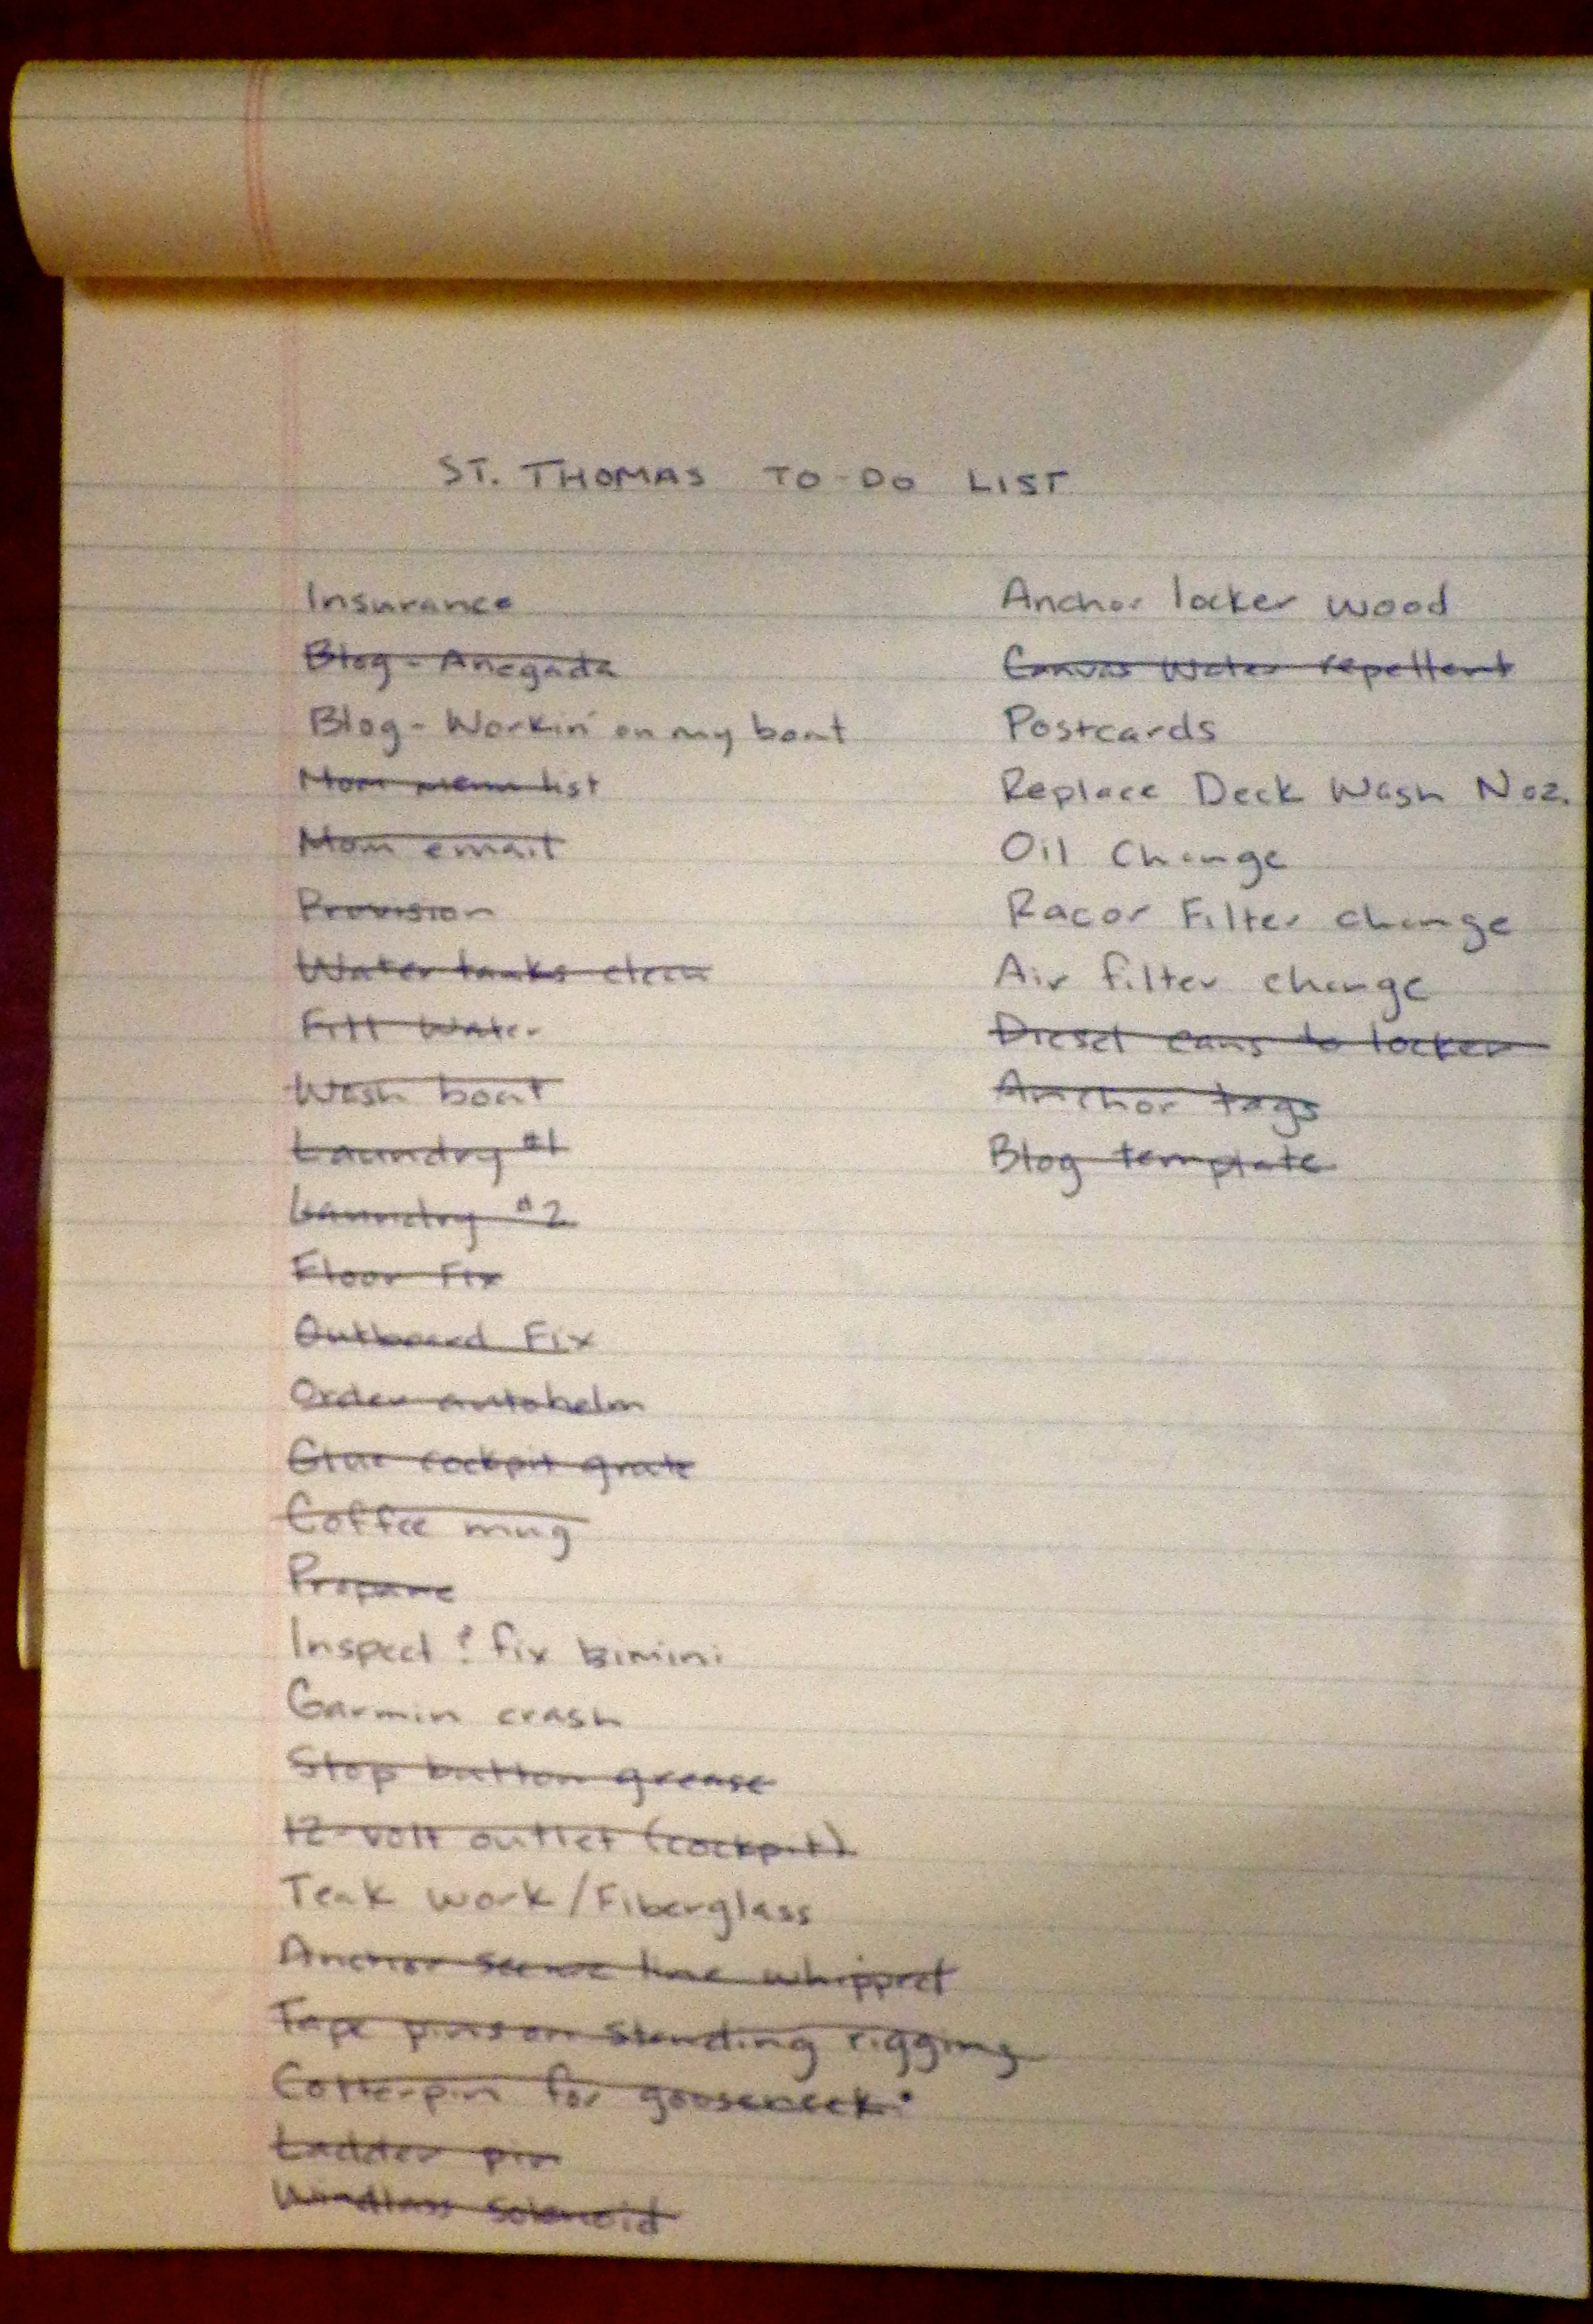 ST. THOMAS TO-DO LIST
Insurance
Blog - Anegada
Blog - Workin' on my boat
Mom menu list
Mom email
Provision
Water tanks clean
Fill Water
Wash boat
Laundry #1
Laundry #2
Floor Fix
Outboard Fix
Order autohelm
Glue cockpit grate
Coffee mug
Propane
Inspect & fix bimini
Garmin crash
Stop button grease
12-volt outlet (cockpit)
Teak work/Fiberglass
Anchor secure line whipped
Tape pins on standing rigging
Cotterpin for gooseneck
Ladder pin
Windlass Solenoid
Anchor locker wood
Canvas Water repellent
Postcards
Replace Deck Wash Noz.
Oil Change
Racor Filter change
Air filter change
Diesel cans to locker
Anchor tags
Blog template